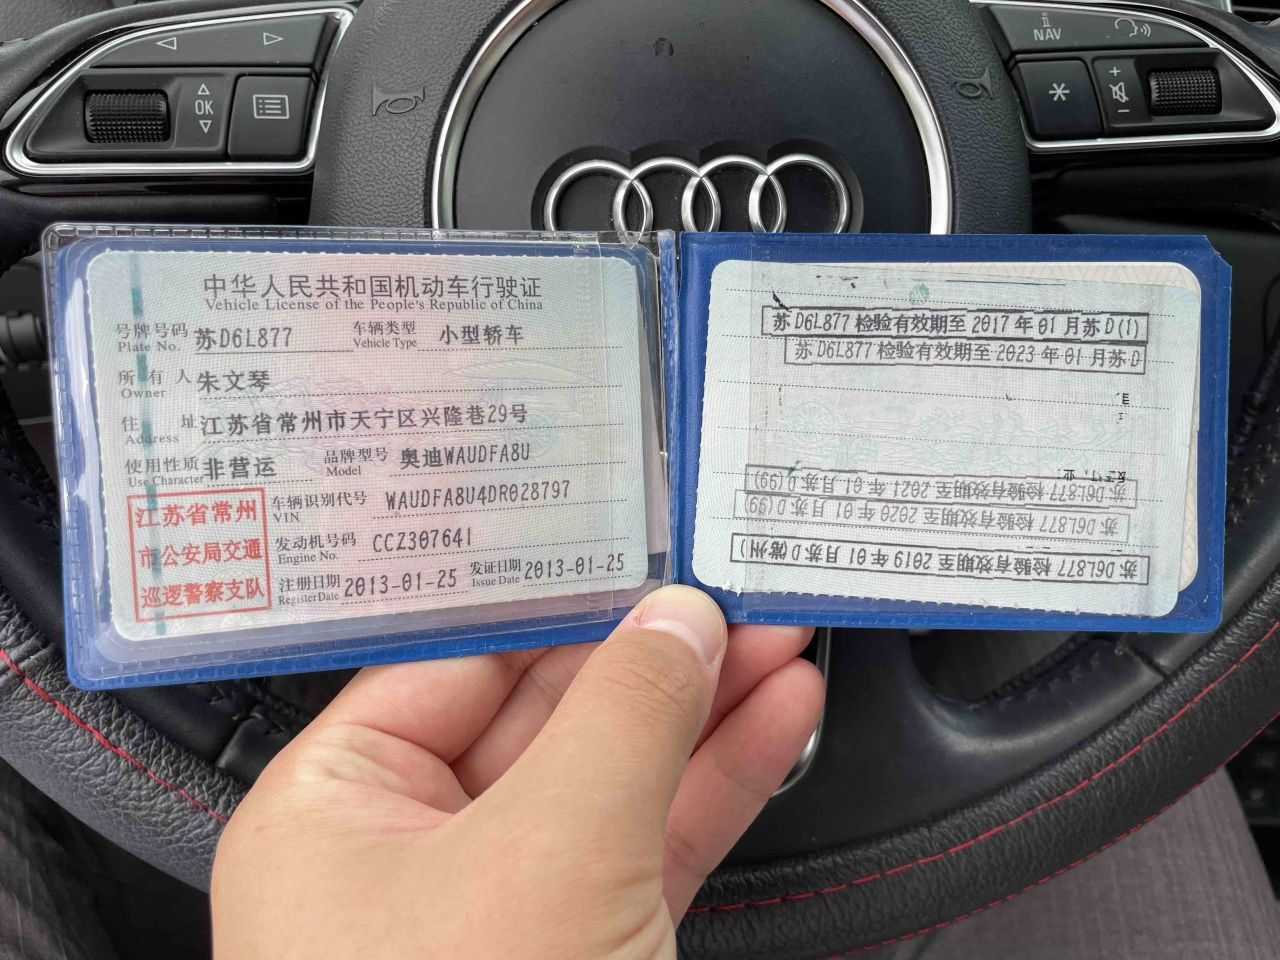 NAV
OK
中华人民共和国机动车行驶证
Vehicle License of the People's Republic of China
号牌号码 苏D6L877 车辆类型 小型轿车
Plate No. Vehicle Type
所有人 朱文琴
Owner
住址 江苏省常州市天宁区兴隆巷29号
Address
使用性质 非营运 品牌型号 奥迪WAUDFA8U
Use Character Model
江苏省常州
市公安局交通
巡逻警察支队
车辆识别代号 WAUDFA8U4DR028797
VIN
发动机号码 CCZ307641
Engine No.
注册日期 2013-01-25 发证日期 2013-01-25
Register Date Issue Date
苏D6L877 检验有效期至 2017 年 01 月苏D(1)
苏D6L877 检验有效期至 2023 年 01 月苏D
苏D6L877 检验有效期至 2021 年 01 月苏D(99)
苏D6L877 检验有效期至 2020 年 01 月苏D(99)
苏D6L877 检验有效期至 2019 年 01 月苏D(常州)